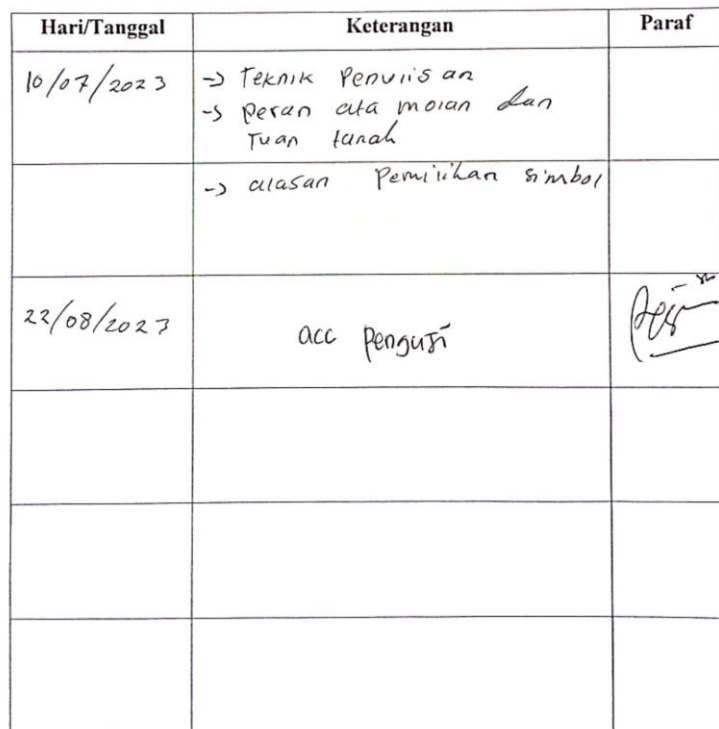 Hari/Tanggal Keterangan Paraf
10/07/2023 -> Teknik Penulisan
-> Peran ata molan dan
Tuan tanah
-> alasan Pemilihan simbol
22/08/2023 acc Penguji